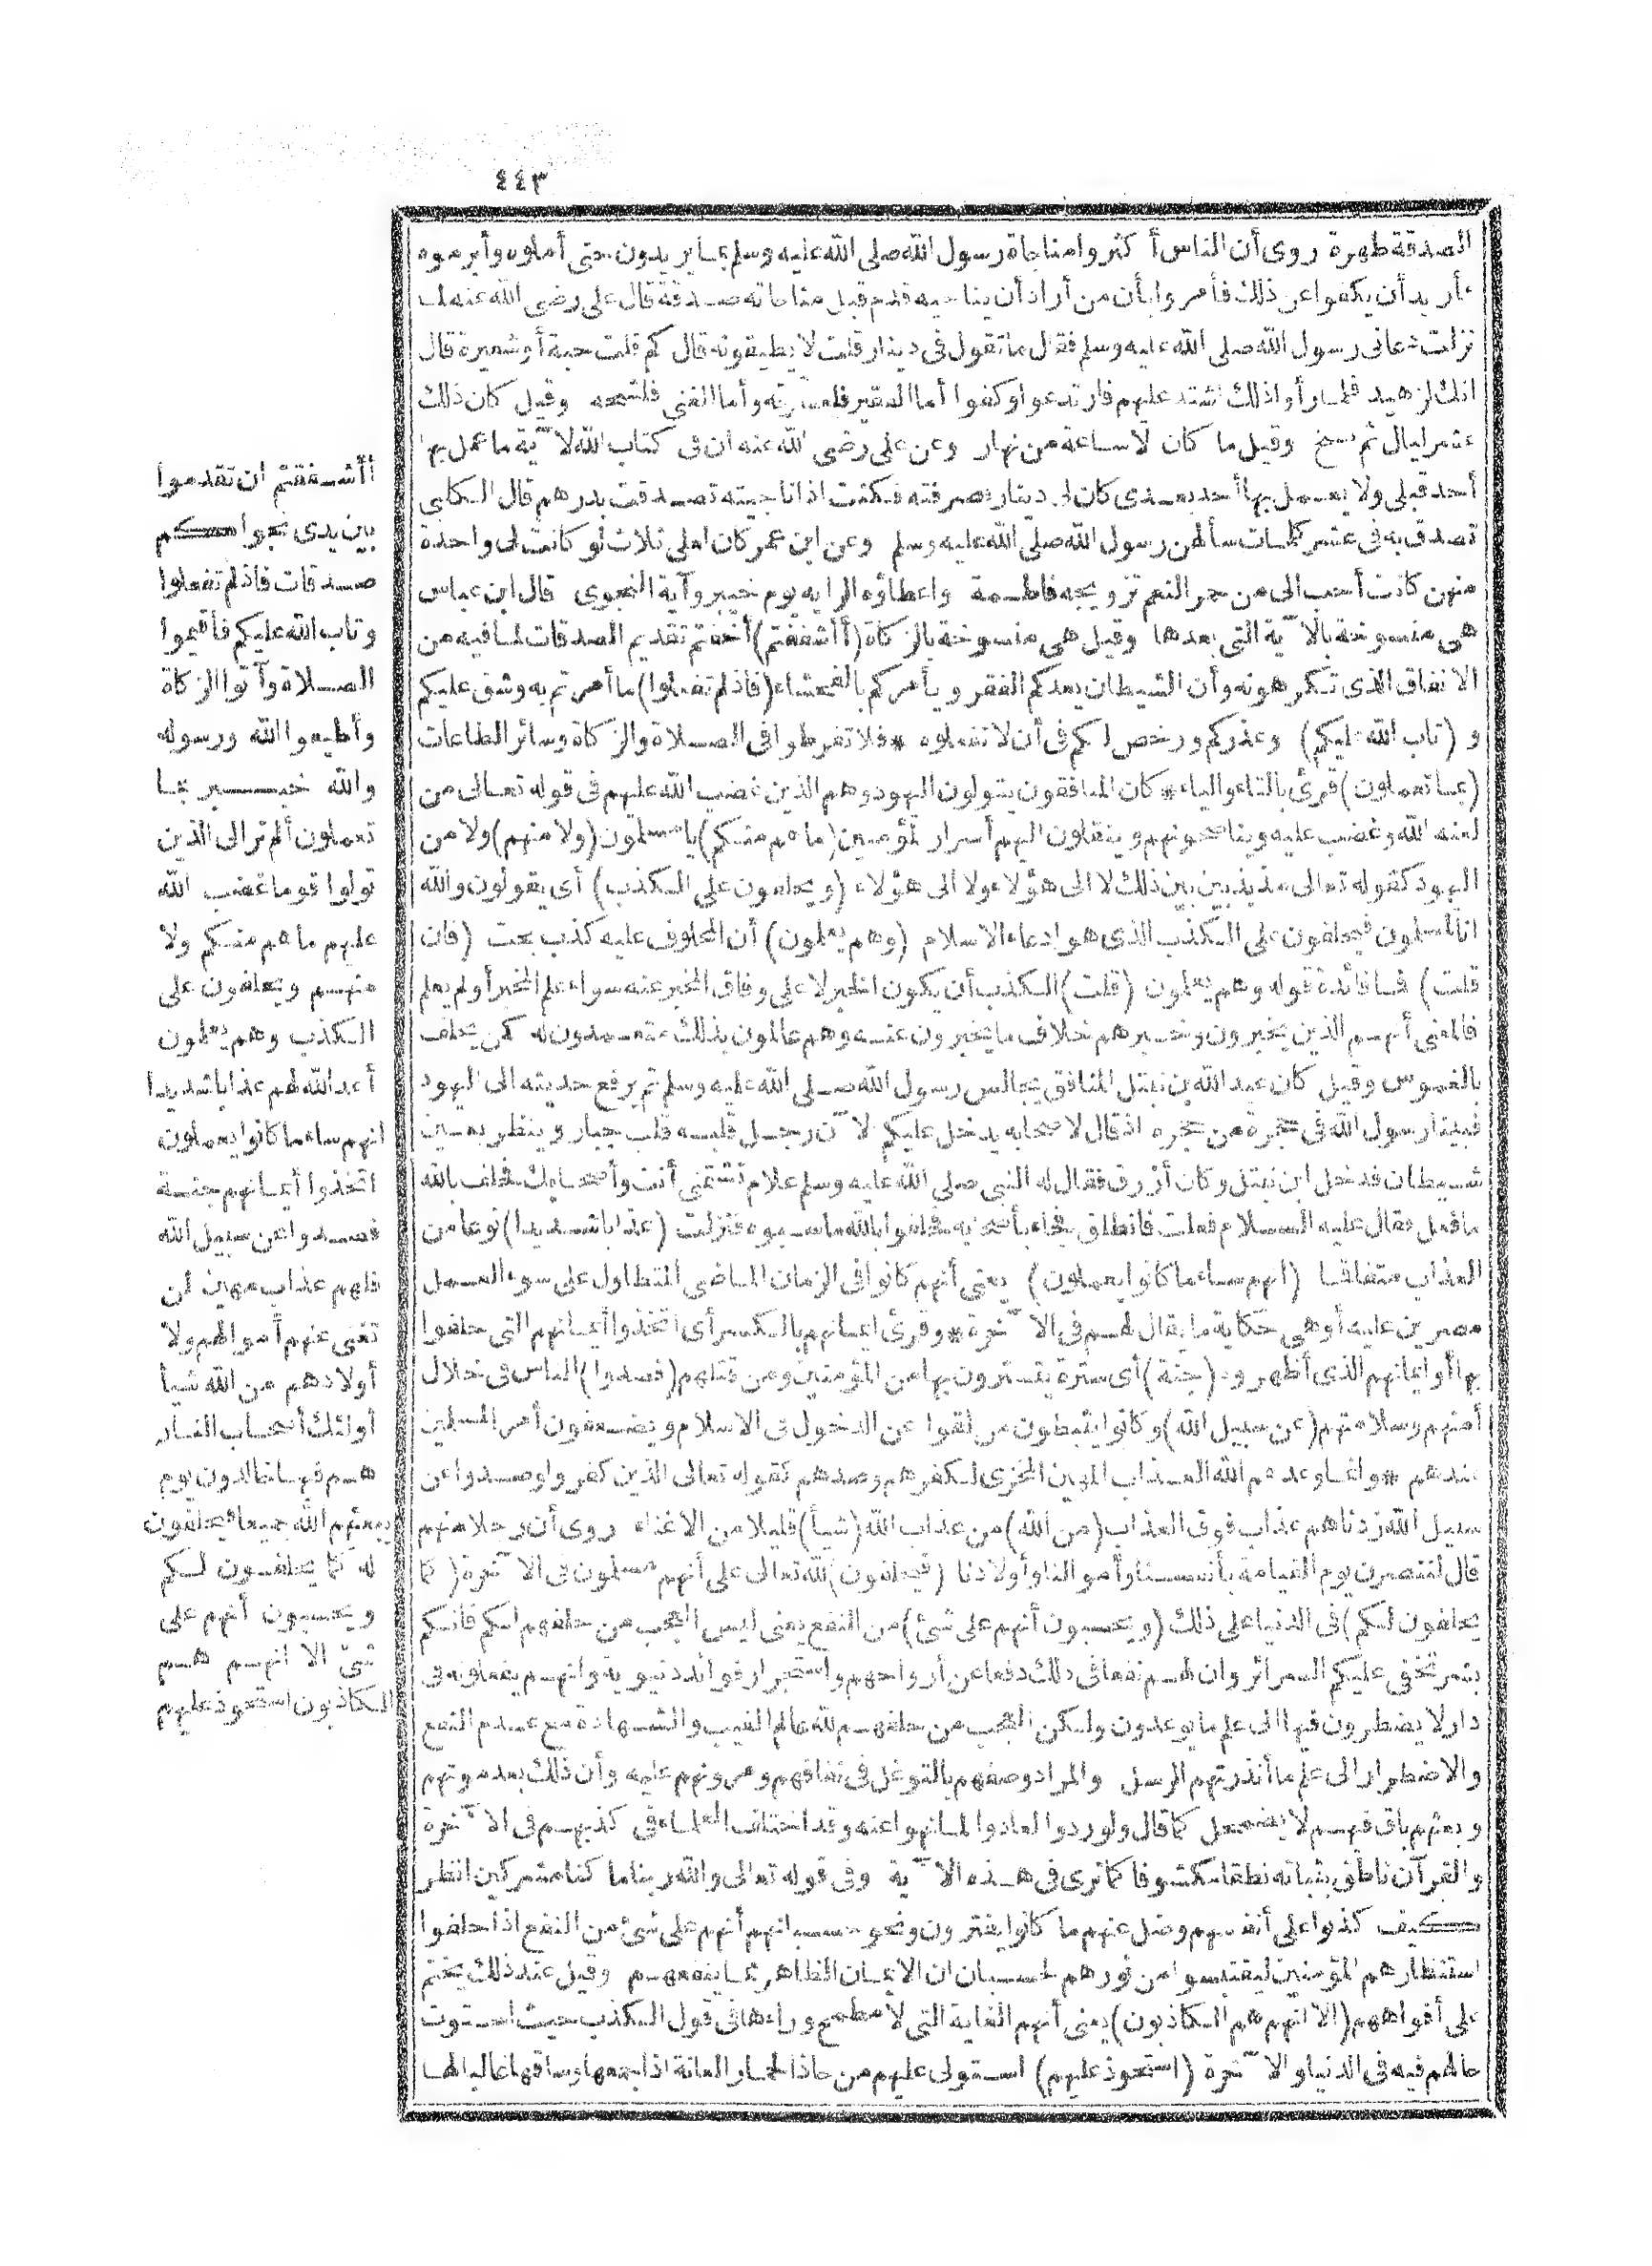 ٤٤٣
الصدقة طهرة روى أن الناس أكثروا مناجاة رسول الله صلى الله عليه وسلم بما يريدون حتى أملوه وأبرموه
فأريد أن يكفوا عن ذلك فأمروا بأن من أراد أن يناجيه قدم قبل مناجاته صدقة قال على رضى الله عنه لما
نزلت دعانى رسول الله صلى الله عليه وسلم فقال ما تقول فى دينار قلت لا يطيقونه قال كم قلت حبة أو شعيرة قال
انك لزهيد فلما رأوا ذلك اشتد عليهم فارتدعوا وكفوا أما الفقير فلعسرته وأما الغنى فلشحه وقيل كان ذلك
عشر ليال ثم نسخ وقيل ما كان الا ساعة من نهار وعن على رضى الله عنه ان فى كتاب الله لآية ما عمل بها
أحد قبلى ولا يعمل بها أحد بعدى كان لى دينار فصرفته فكنت اذا ناجيته تصدقت بدرهم قال الكلبى
تصدق به فى عشر كلمات سألهن رسول الله صلى الله عليه وسلم وعن ابن عمر كان لعلى ثلاث لو كانت لى واحدة
منهن كانت أحب الى من حمر النعم تزويجه فاطمة واعطاؤه الراية يوم خيبر وآية النجوى قال ابن عباس
هى منسوخة بالآية التى بعدها وقيل هى منسوخة بالزكاة (أأشفقتم) أخفتم تقديم الصدقات لما فيه من
الانفاق الذى تكرهونه وأن الشيطان يعدكم الفقر ويأمركم بالفحشاء (فاذ لم تفعلوا) ما أمرتم به وشق عليكم
و (تاب الله عليكم) وعذركم ورخص لكم فى أن لا تفعلوه * فلا تفرطوا فى الصلاة والزكاة وسائر الطاعات
(بما تعملون) قرئ بالتاء والياء * كان المنافقون يتولون اليهود وهم الذين غضب الله عليهم فى قوله تعالى من
لعنه الله وغضب عليه ويناصحونهم وينقلون اليهم أسرار المؤمنين (ما هم منكم) يا مسلمون (ولا منهم) ولا من
اليهود كقوله تعالى مذبذبين بين ذلك لا الى هؤلاء ولا الى هؤلاء (ويحلفون على الكذب) أى يقولون والله
انا لمسلمون فيحلفون على الكذب الذى هو ادعاء الاسلام (وهم يعلمون) أن المحلوف عليه كذب بحت (فان
قلت) فما فائدة قوله وهم يعلمون (قلت) الكذب أن يكون الخبر لا على وفاق المخبر عنه سواء علم المخبر أو لم يعلم
فالمعنى أنهم الذين يخبرون وخبرهم خلاف ما يخبرون عنه وهم عالمون بذلك متعمدون له كمن يحلف
بالغموس وقيل كان عبد الله بن نبتل المنافق يجالس رسول الله صلى الله عليه وسلم ثم يرفع حديثه الى اليهود
فبينا رسول الله فى حجرة من حجره اذ قال لاصحابه يدخل عليكم الآن رجل قلبه قلب جبار وينظر بعين
شيطان فدخل ابن نبتل وكان أزرق فقال له النبى صلى الله عليه وسلم علام تشتمنى أنت وأصحابك فحلف بالله
ما فعل فقال عليه السلام فعلت فانطلق فجاء بأصحابه فحلفوا بالله ما سبوه فنزلت (عذابا شديدا) نوعا من
العذاب متفاقما (انهم ساء ما كانوا يعملون) يعنى أنهم كانوا فى الزمان الماضى المتطاول على سوء العمل
مصرين عليه أو هى حكاية ما يقال لهم فى الآخرة * وقرئ ايمانهم بالكسر أى اتخذوا أيمانهم التى حلفوا
بها أو ايمانهم الذى أظهروه (جنة) أى سترة يتسترون بها من المؤمنين ومن قتلهم (فصدوا) الناس فى خلال
أمنهم وسلامتهم (عن سبيل الله) وكانوا يثبطون من لقوا عن الدخول فى الاسلام ويضعفون أمر المسلمين
عندهم * وانما وعدهم الله العذاب المهين المخزى لكفرهم وصدهم كقوله تعالى الذين كفروا وصدوا عن
سبيل الله زدناهم عذابا فوق العذاب (من الله) من عذاب الله (شيأ) قليلا من الاغناء روى أن رجلا منهم
قال لننصرن يوم القيامة بأنفسنا وأموالنا وأولادنا (فيحلفون) لله تعالى على أنهم مسلمون فى الآخرة (كما
يحلفون لكم) فى الدنيا على ذلك (ويحسبون أنهم على شئ) من النفع يعنى ليس العجب من حلفهم لكم فانكم
بشر تخفى عليكم السرائر وان لهم نفعا فى ذلك دفعا عن أرواحهم واستجرار فوائد دنيوية وانهم يفعلونه فى
دار لا يضطرون فيها الى علم ما يوعدون ولكن العجب من حلفهم لله عالم الغيب والشهادة مع عدم النفع
والاضطرار الى علم ما أنذرتهم الرسل والمراد وصفهم بالتوغل فى نفاقهم ومرونهم عليه وأن ذلك بعد موتهم
وبعثهم باق فيهم لا يضمحل كما قال ولو ردوا لعادوا لما نهوا عنه وقد اختلف العلماء فى كذبهم فى الآخرة
والقرآن ناطق بثباته نطقا مكشوفا كما ترى فى هذه الآية وفى قوله تعالى والله ربنا ما كنا مشركين انظر
كيف كذبوا على أنفسهم وضل عنهم ما كانوا يفترون ونحو حسبانهم أنهم على شئ من النفع اذا حلفوا
استنظارهم المؤمنين ليقتبسوا من نورهم لحسبان ان الايمان الظاهر مما ينفعهم وقيل عند ذلك يختم
على أفواههم (الا انهم هم الكاذبون) يعنى أنهم الغاية التى لا مطمح وراءها فى قول الكذب حيث استوت
حالهم فيه فى الدنيا والآخرة (استحوذ عليهم) استولى عليهم من حاذ الحمار العانة اذا جمعها وساقها غالبا لها
أأشفقتم ان تقدموا
بين يدى نجواكم
صدقات فاذ لم تفعلوا
وتاب الله عليكم فأقيموا
الصلاة وآتوا الزكاة
وأطيعوا الله ورسوله
والله خبير بما
تعملون ألم تر الى الذين
تولوا قوما غضب الله
عليهم ما هم منكم ولا
منهم ويحلفون على
الكذب وهم يعلمون
أعد الله لهم عذابا شديدا
انهم ساء ما كانوا يعملون
اتخذوا أيمانهم جنة
فصدوا عن سبيل الله
فلهم عذاب مهين لن
تغنى عنهم أموالهم ولا
أولادهم من الله شيأ
أولئك أصحاب النار
هم فيها خالدون يوم
يبعثهم الله جميعا فيحلفون
له كما يحلفون لكم
ويحسبون أنهم على
شئ الا انهم هم
الكاذبون استحوذ عليهم